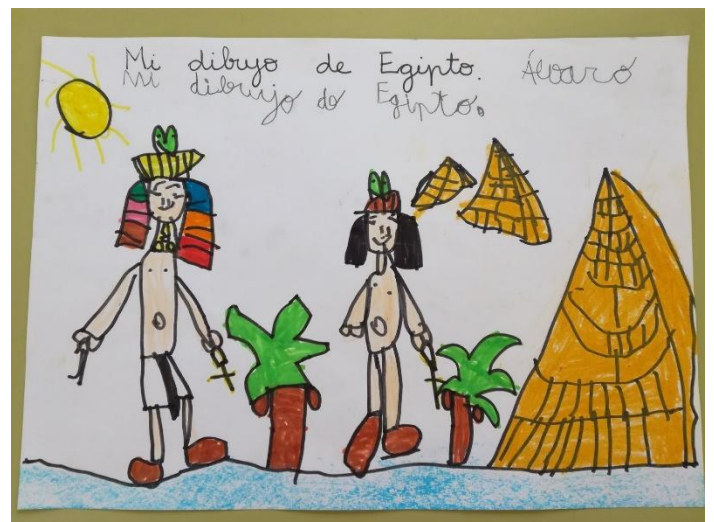 Mi dibujo de Egipto. Álvaro
Mi dibujo de Egipto.